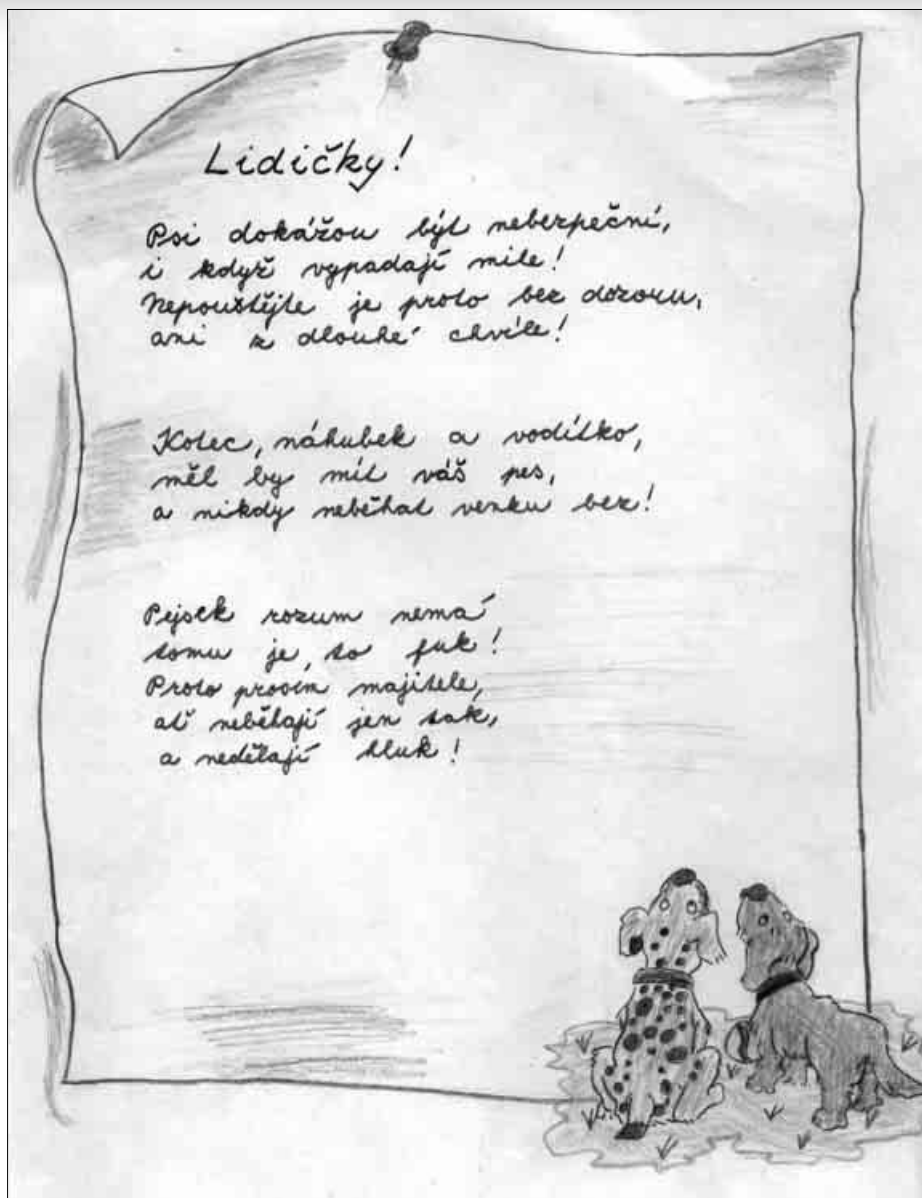 Lidičky!
Psi dokážou být nebezpeční,
i když vypadají mile!
Nepouštějte je proto bez dozoru,
ani z dlouhé chvíle!
Kotec, náhubek a vodítko,
měl by mít váš pes,
a nikdy neběhat venku bez!
Pejsek rozum nemá
tomu je to fuk!
Proto prosím majitele,
ať neběhají jen tak,
a nedělají hluk!